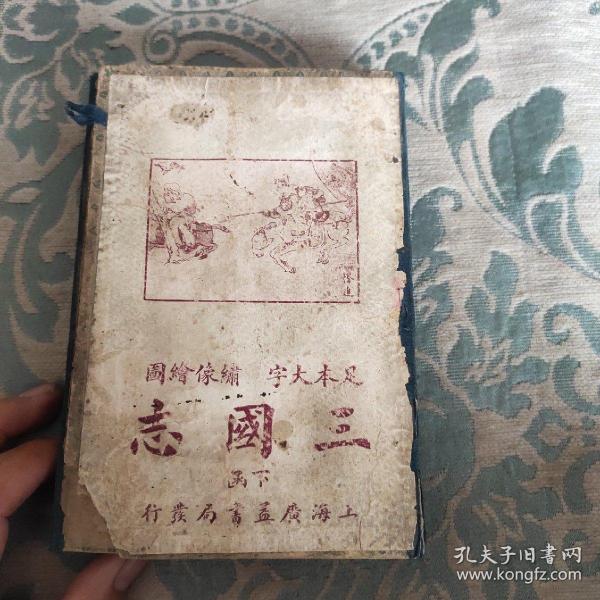 足本大字 繡像繪圖
三國志
下函
上海廣益書局發行
孔夫子旧書网
www.kongfz.com